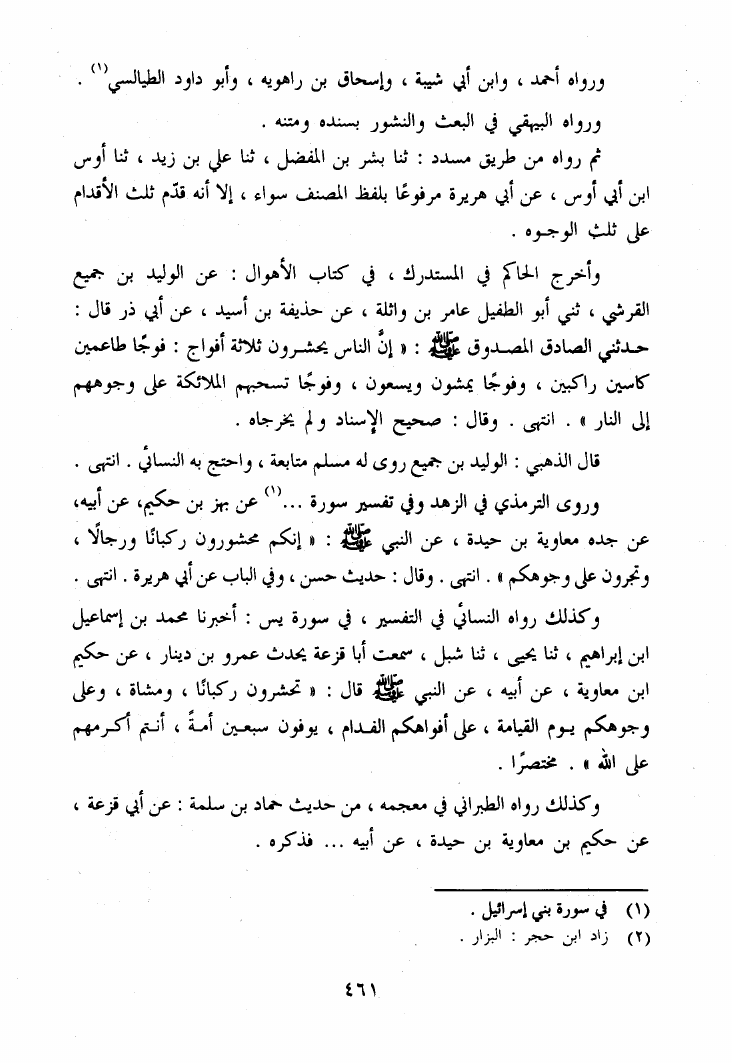 ورواه أحمد ، وابن أبي شيبة ، وإسحاق بن راهويه ، وأبو داود الطيالسي(١) .
ورواه البيهقي في البعث والنشور بسنده ومتنه .
ثم رواه من طريق مسدد : ثنا بشر بن المفضل ، ثنا علي بن زيد ، ثنا أوس
ابن أبي أوس ، عن أبي هريرة مرفوعًا بلفظ المصنف سواء ، إلا أنه قدّم ثلث الأقدام
على ثلث الوجوه .
وأخرج الحاكم في المستدرك ، في كتاب الأهوال : عن الوليد بن جميع
القرشي ، ثني أبو الطفيل عامر بن واثلة ، عن حذيفة بن أسيد ، عن أبي ذر قال :
حدثني الصادق المصدوق ﷺ : « إنَّ الناس يحشرون ثلاثة أفواج : فوجًا طاعمين
كاسين راكبين ، وفوجًا يمشون ويسعون ، وفوجًا تسحبهم الملائكة على وجوههم
إلى النار » . انتهى . وقال : صحيح الإسناد ولم يخرجاه .
قال الذهبي : الوليد بن جميع روى له مسلم متابعة ، واحتج به النسائي . انتهى .
وروى الترمذي في الزهد وفي تفسير سورة ...(١) عن بهز بن حكيم، عن أبيه،
عن جده معاوية بن حيدة ، عن النبي ﷺ : « إنكم محشورون ركبانًا ورجالًا ،
وتجرون على وجوهكم » . انتهى . وقال : حديث حسن ، وفي الباب عن أبي هريرة . انتهى .
وكذلك رواه النسائي في التفسير ، في سورة يس : أخبرنا محمد بن إسماعيل
ابن إبراهيم ، ثنا يحيى ، ثنا شبل ، سمعت أبا قزعة يحدث عمرو بن دينار ، عن حكيم
ابن معاوية ، عن أبيه ، عن النبي ﷺ قال : « تحشرون ركبانًا ، ومشاة ، وعلى
وجوهكم يوم القيامة ، على أفواهكم الفدام ، يوفون سبعين أمةً ، أنتم أكرمهم
على الله » . مختصرًا .
وكذلك رواه الطبراني في معجمه ، من حديث حماد بن سلمة : عن أبي قزعة ،
عن حكيم بن معاوية بن حيدة ، عن أبيه ... فذكره .
(١) في سورة بني إسرائيل .
(٢) زاد ابن حجر : البزار .
٤٦١